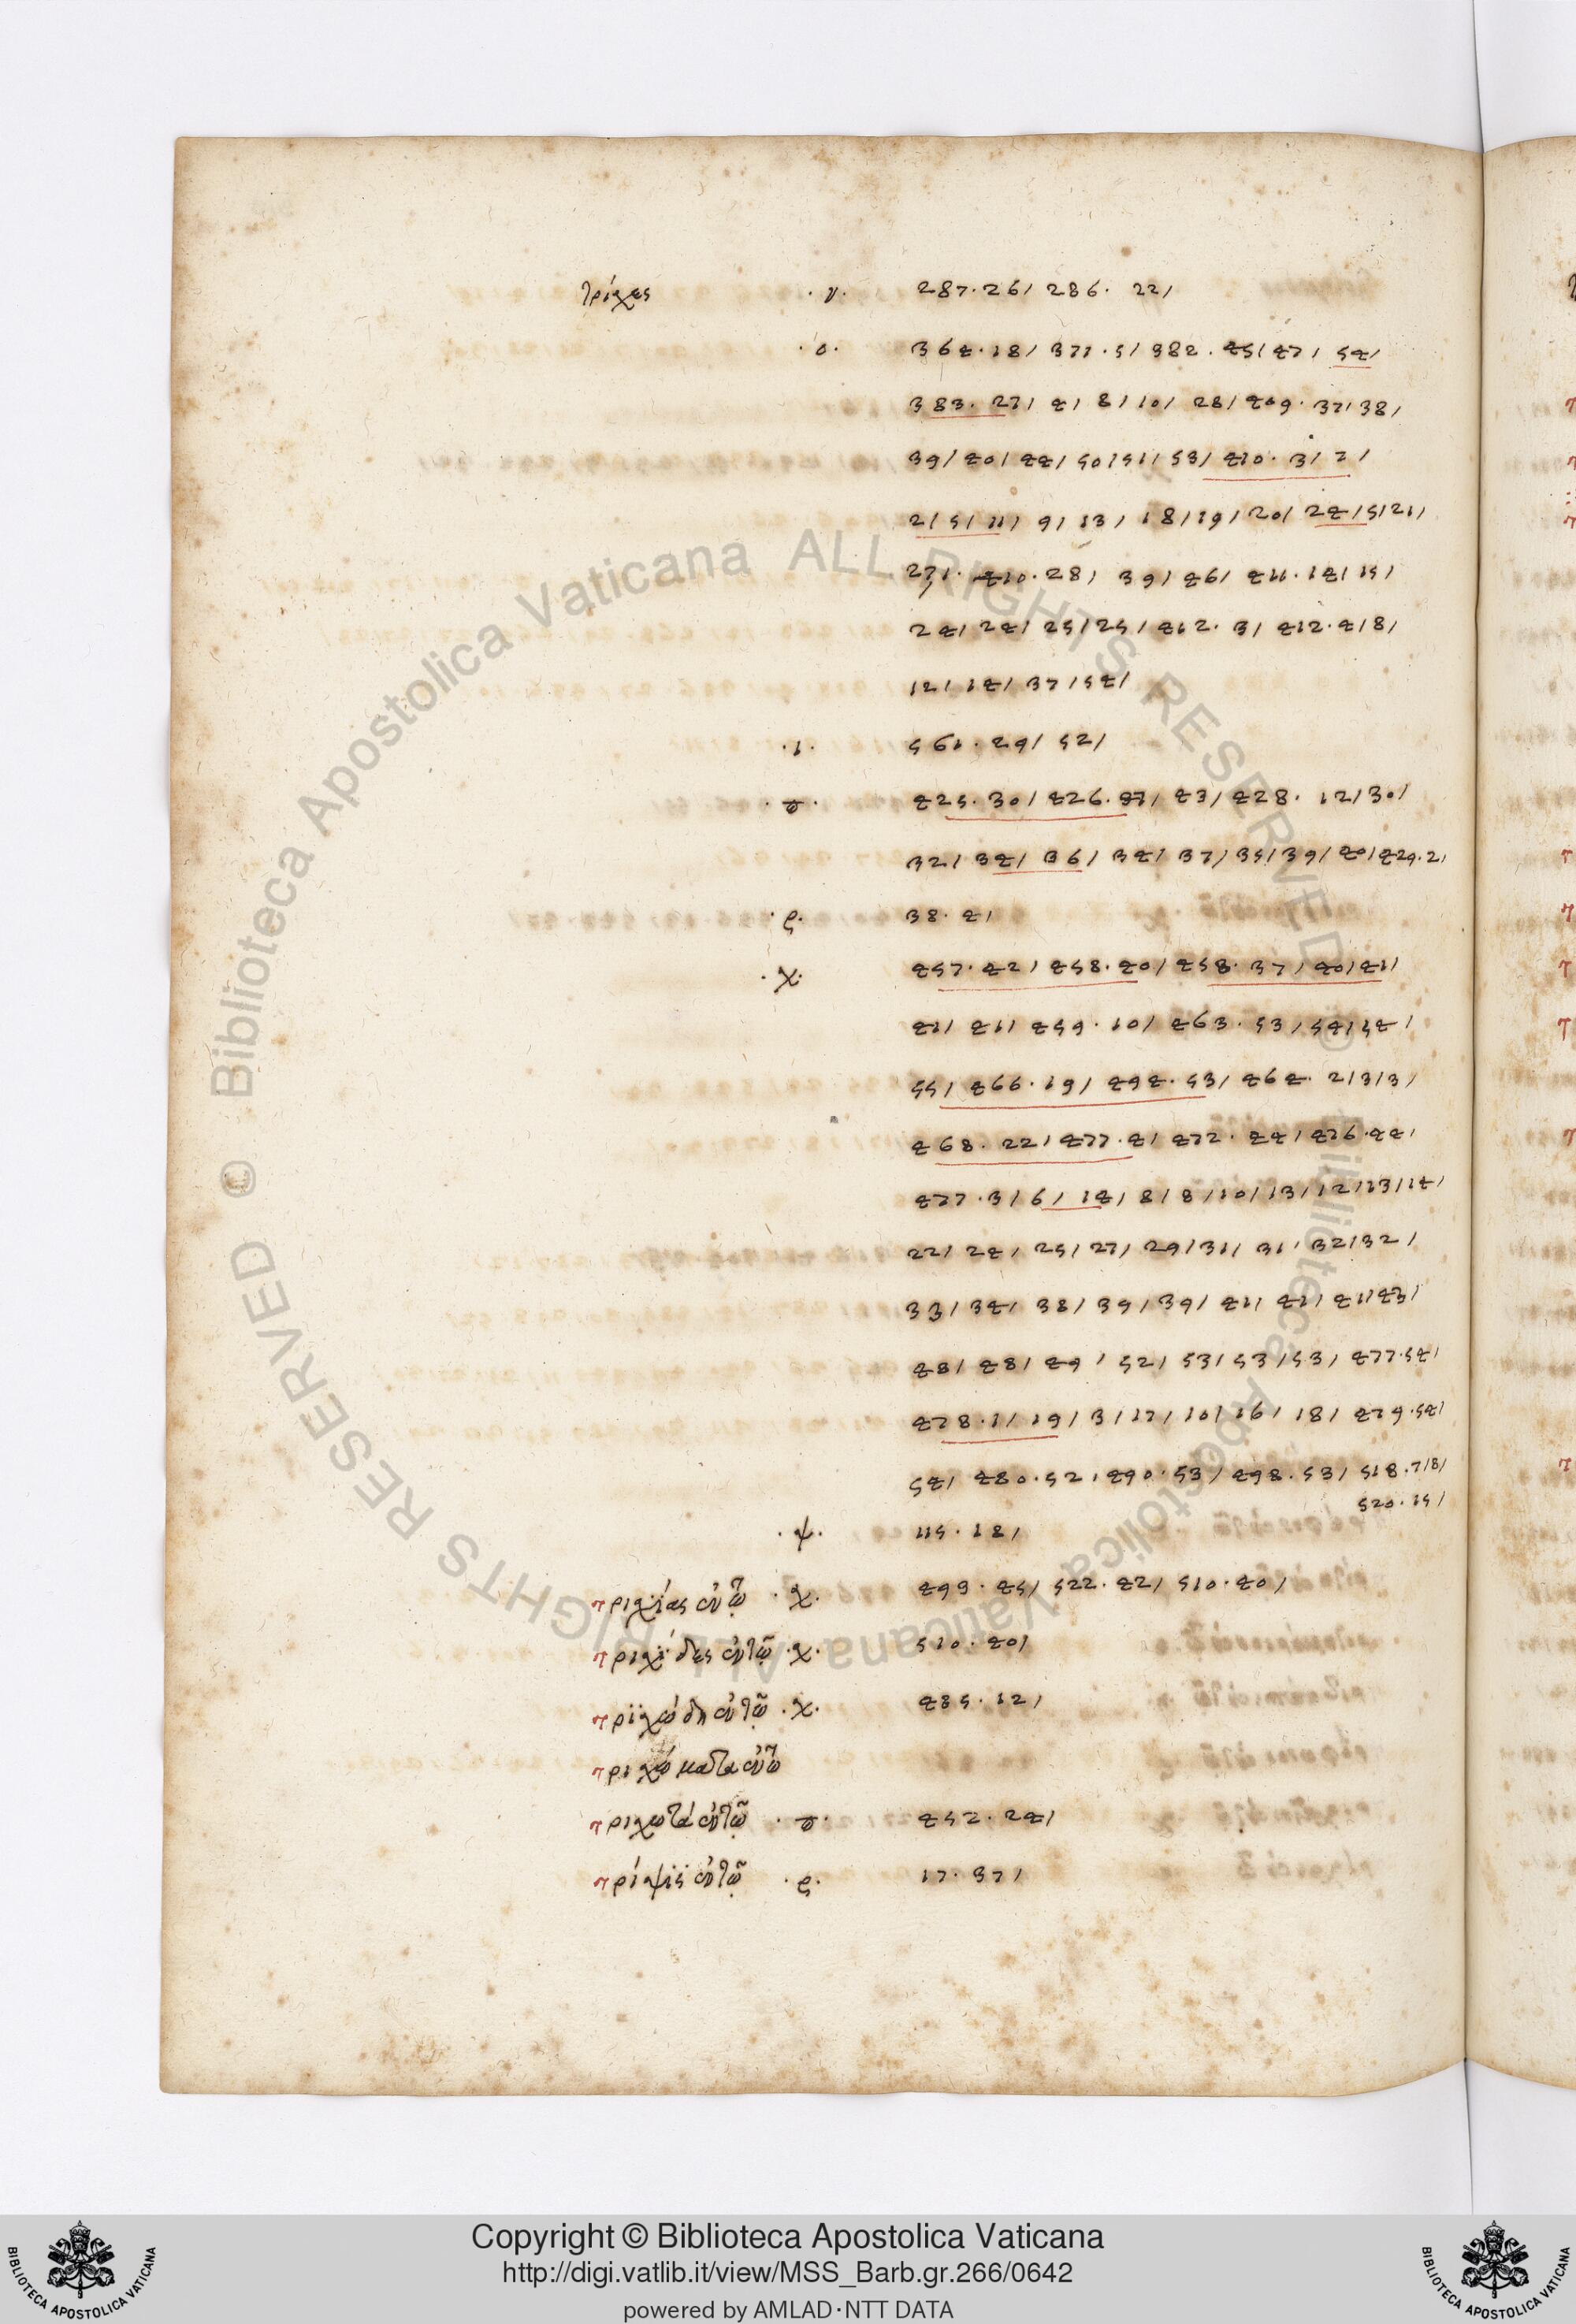 τρίχες ·ν· 287·26/ 286· 22/
·ο· 364·18/ 371·5/ 382·45/47/ 54/
383·27/ 4/ 8/10/ 28/409·37/38/
39/40/44/50/51/53/410·3/2/
2/5/11/9/13/18/19/20/24/5/21/
27/·410·28/ 39/46/411·14/15/
24/24/25/25/412·3/ 412·4/8/
12/14/37/54/
·ι· 561·29/ 52/
425·30/426· /43/428·12/30/
32/34/36/34/37/35/39/40/429·2/
·ρ· 38·4/
·χ· 457·42/458·40/458·37/40/41/
41/41/459·10/463·53/54/54/
55/466·19/494·53/464·2/3/3/
468·22/477·4/472·44/476·44/
477·3/6/14/8/8/10/13/12/13/14/
22/24/25/27/29/31/31/32/32/
33/34/38/39/39/41/41/41/43/
48/48/49/52/53/53/53/477·54/
478·1/19/3/17/10/16/18/479·54/
54/480·52/490·53/498·53/518·7/8/
520·15/
·ψ· 115·18/
τριχίας οὕτω ·χ· 499·45/522·42/510·40/
τριχίδες οὕτω ·χ· 510·40/
τριχώδη οὕτω ·χ· 485·12/
τριχώματα οὕτω
τριχωτά οὕτω 452·24/
τρίψις οὕτω ·ρ· 17·37/
Copyright © Biblioteca Apostolica Vaticana
http://digi.vatlib.it/view/MSS_Barb.gr.266/0642
powered by AMLAD·NTT DATA